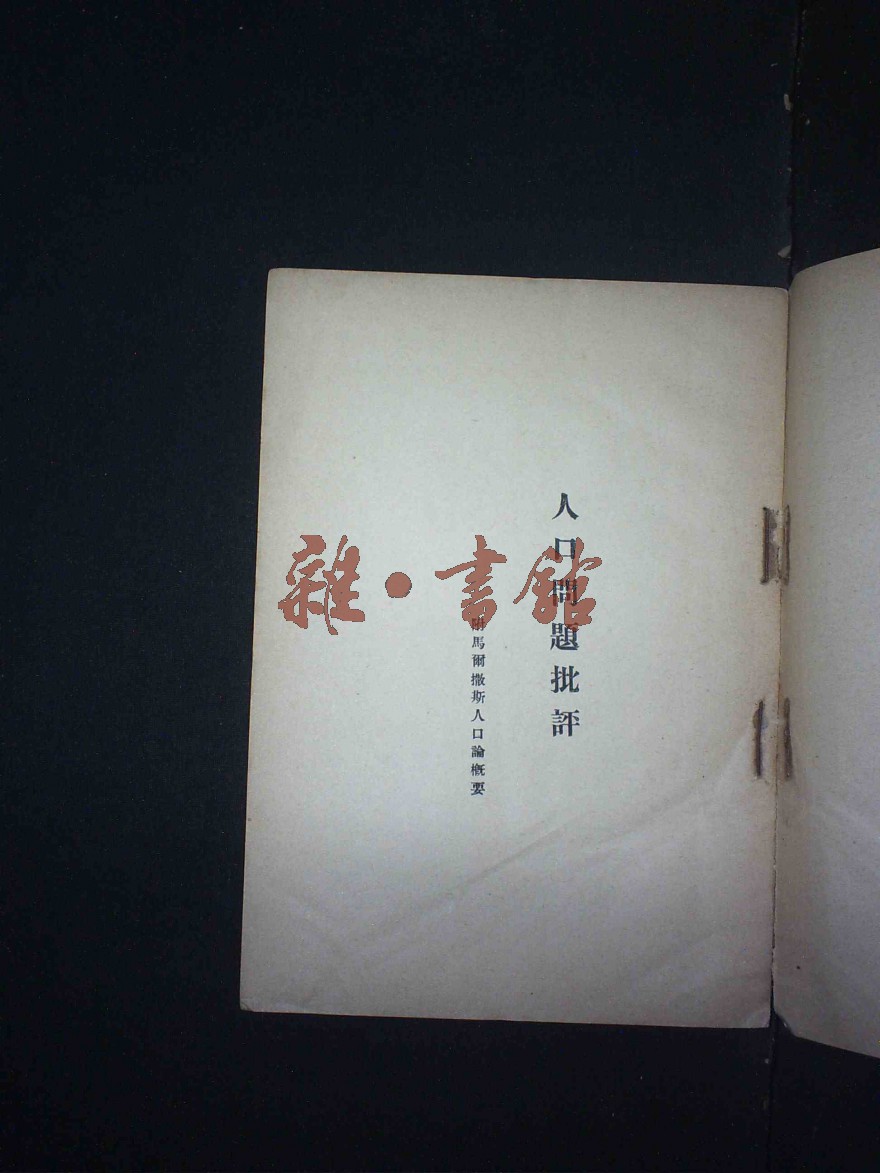 人口問題批評
附馬爾撒斯人口論概要
雜·書館